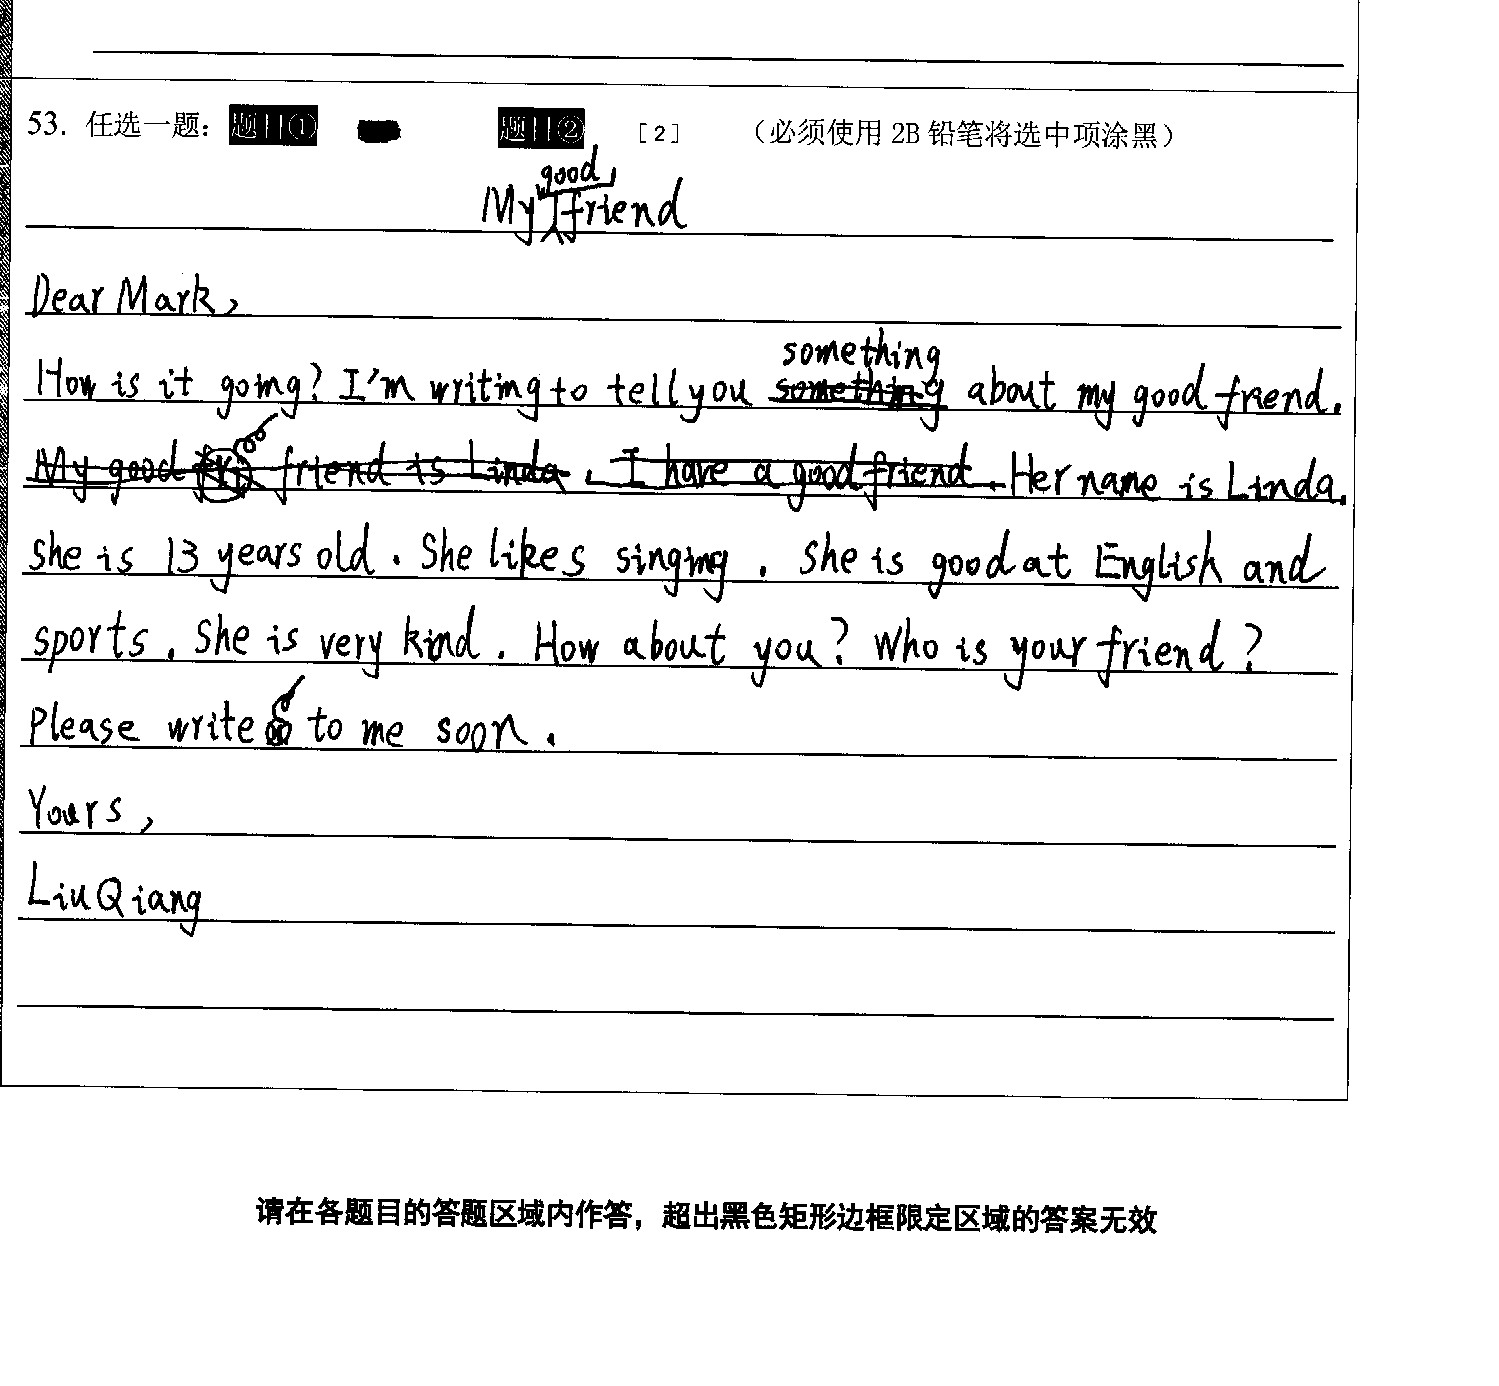 53. 任选一题： 题目① 题目② [2] （必须使用 2B 铅笔将选中项涂黑）
My good friend
Dear Mark,
How is it going? I'm writing to tell you something about my good friend.
My good friend is Linda. I have a good friend. Her name is Linda.
She is 13 years old. She likes singing. She is good at English and
sports. She is very kind. How about you? Who is your friend?
Please write to me soon.
Yours,
Liu Qiang
请在各题目的答题区域内作答，超出黑色矩形边框限定区域的答案无效